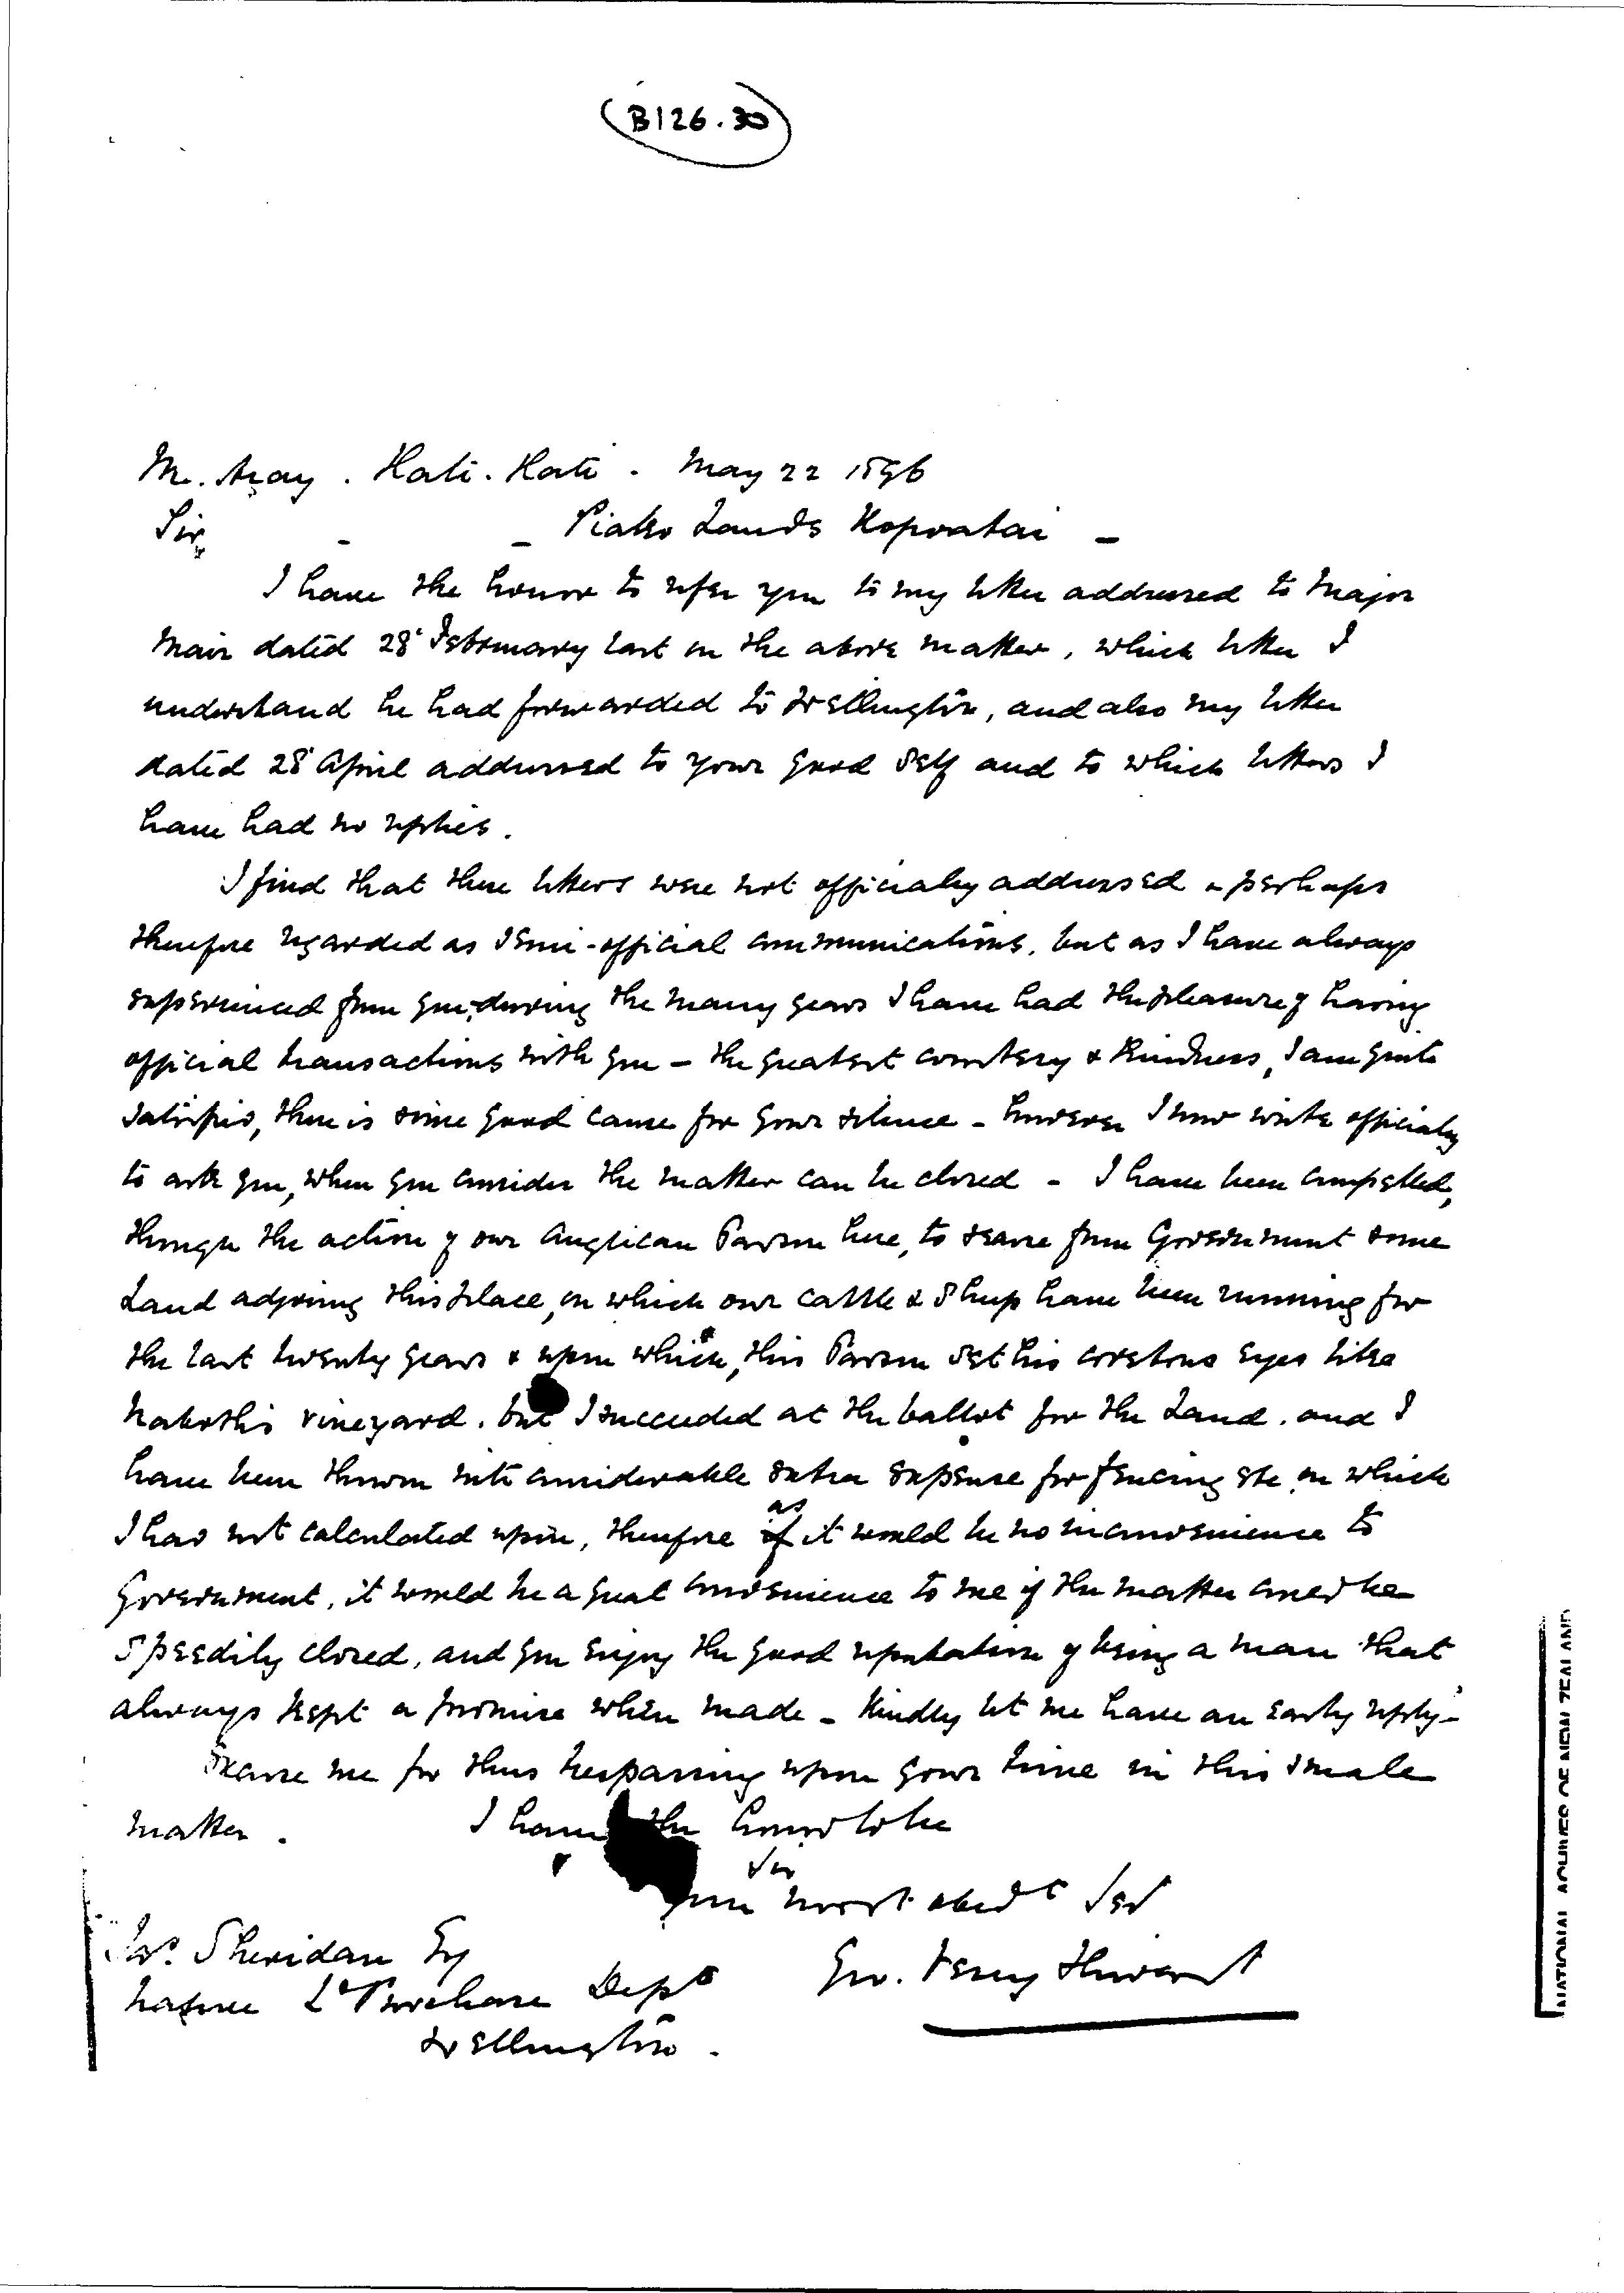 B126.30
Mt. Stewart. Kati-Kati. May 22 1896
Sir
- Piako Lands Kopuatai -
I have the honor to refer you to my letter addressed to Major
Mair dated 28 February last on the above matter, which letter I
understand he had forwarded to Wellington, and also my letter
dated 28 April addressed to your good self and to which letters I
have had no replies.
I find that these letters were not officially addressed & perhaps
therefore regarded as semi-official communications, but as I have always
experienced from you, during the many years I have had the pleasure of having
official transactions with you - the greatest courtesy & kindness, I am quite
satisfied, there is some good cause for your silence - however I now write officially
to ask you, when you consider the matter can be closed - I have been compelled,
through the action of our Anglican Parson here, to lease from Government some
Land adjoining this place, on which our cattle & sheep have been running for
the last twenty years & upon which, this Parson set his covetous eyes like
Naboth's vineyard. but I succeeded at the ballot for the Land. and I
have been thrown into considerable extra expense for fencing etc on which
I had not calculated upon, therefore as if it would be no inconvenience to
Government, it would be a great convenience to me if the matter could be
speedily closed, and you enjoy the good reputation of being a man that
always kept a promise when made - Kindly let me have an early reply -
Excuse me for thus trespassing upon your time in this small
matter. I have the honor to be
Sir
Your most obedt Svt
Geo. Vesey Stewart
Sheridan Esq
Native Ld Purchase Dept
Wellington.
NATIONAL ARCHIVES OF NEW ZEALAND